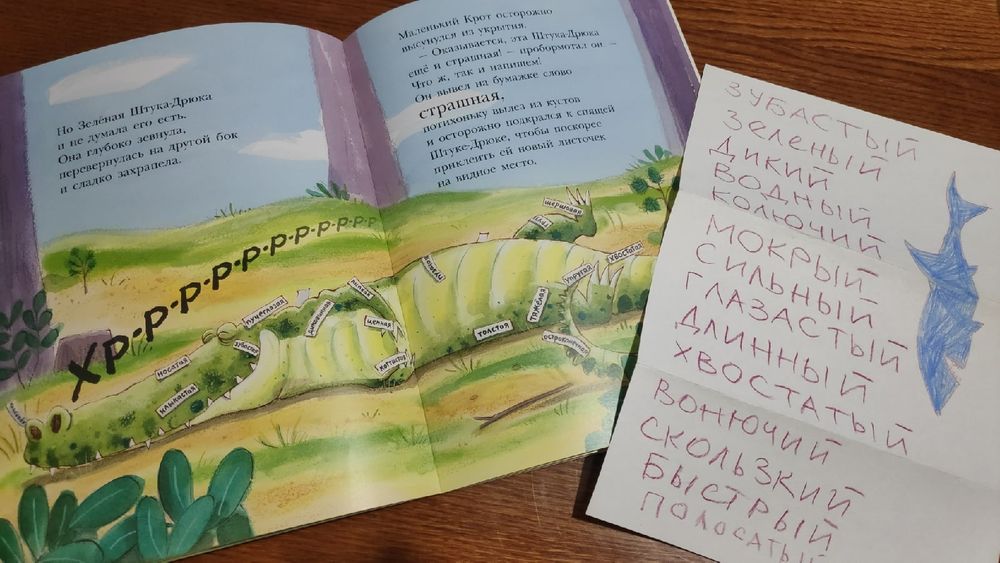 Но Зелёная Штука-Дрюка
и не думала его есть.
Она глубоко зевнула,
перевернулась на другой бок
и сладко захрапела.
Хр-р-р-р-р-р-р-р-р-р-р
Маленький Крот осторожно
высунулся из укрытия.
— Оказывается, эта Штука-Дрюка
ещё и страшная! — пробормотал он. —
Что ж, так и напишем!
Он вывел на бумажке слово
страшная,
потихоньку вылез из кустов
и осторожно подкрался к спящей
Штуке-Дрюке, чтобы поскорее
приклеить ей новый листочек
на видное место.
пучеглазая
носатая
клыкастая
зубастая
длиннющая
ценная
когтистая
толстая
тяжёлая
упругая
хвостатая
остроконечная
шершавая
ЗУБАСТЫЙ
Зеленый
ДИКИЙ
ВОДНЫЙ
КОЛЮЧИЙ
МОКРЫЙ
СИЛЬНЫЙ
ГЛАЗАСТЫЙ
ДЛИННЫЙ
ХВОСТАТЫЙ
ВОНЮЧИЙ
СКОЛЬЗКИЙ
БЫСТРЫЙ
ПОЛОСАТЫЙ